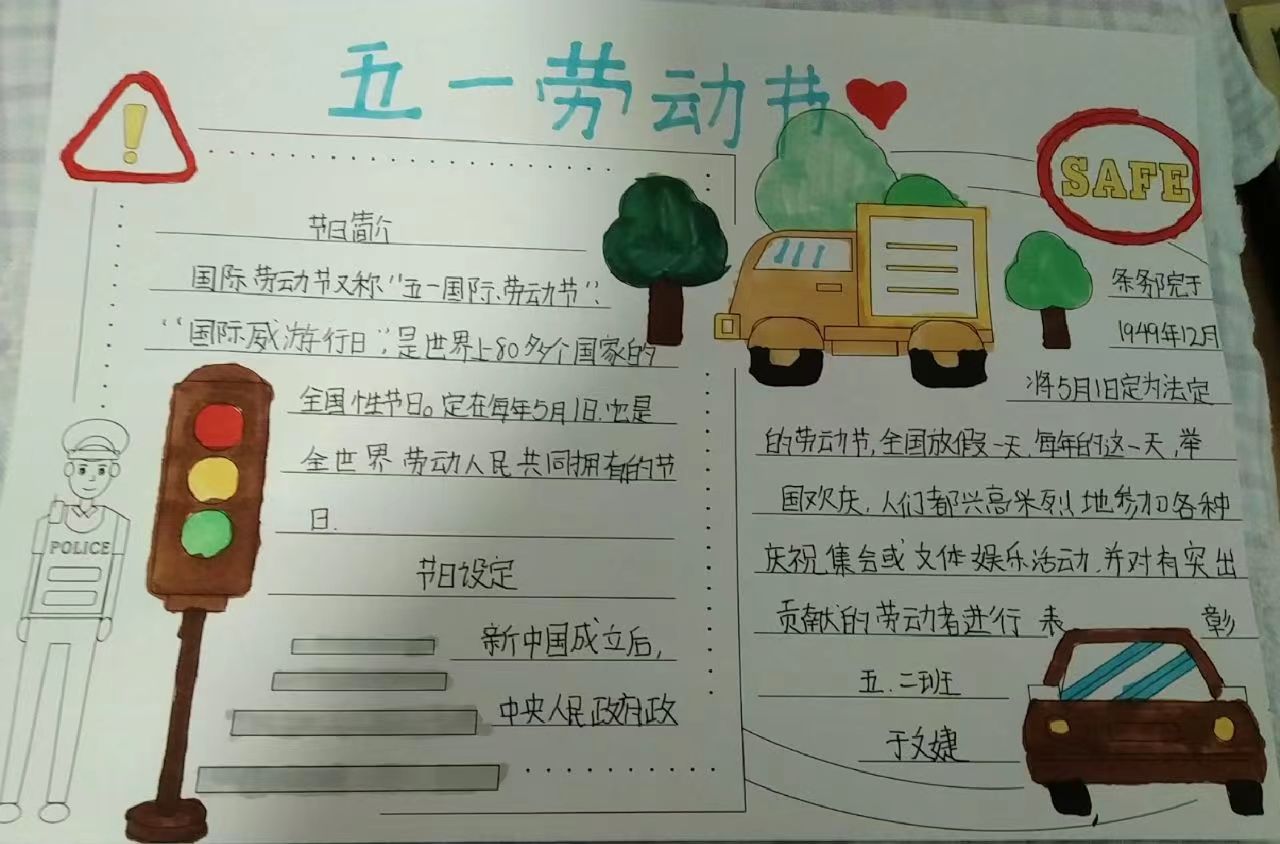 五一劳动节
节日简介
国际劳动节又称"五一国际劳动节"、
"国际威游行日",是世界上80多个国家的
全国性节日。定在每年5月1日.也是
全世界劳动人民共同拥有的节
日.
节日设定
新中国成立后,
中央人民政府政
POLICE
SAFE
条务部院于
1949年12月
将5月1日定为法定
的劳动节,全国放假一天.每年的这一天,举
国欢庆.人们都兴高米烈地参加各种
庆祝集会或文体娱乐活动.并对有突出
贡献的劳动者进行表 彰
五.二班
于文婕